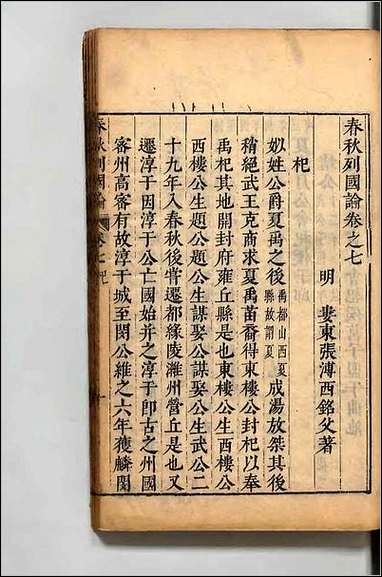 春秋列國論卷之七
明 婁東張溥西銘父著
杞
姒姓公爵夏禹之後禹都山西夏縣故謂夏成湯放桀其後
稍絕武王克商求夏禹苗裔得東樓公封杞以奉
禹杞其地開封府雍丘縣是也東樓公生西樓公
西樓公生題公題公生謀娶公謀娶公生武公二
十九年入春秋後嘗遷都緣陵濰州營丘是也又
遷淳于因淳于公亡國始并之淳于卽古之州國
密州高密有故淳于城至閔公維之六年獲麟閔
春秋列國論 卷七 杞